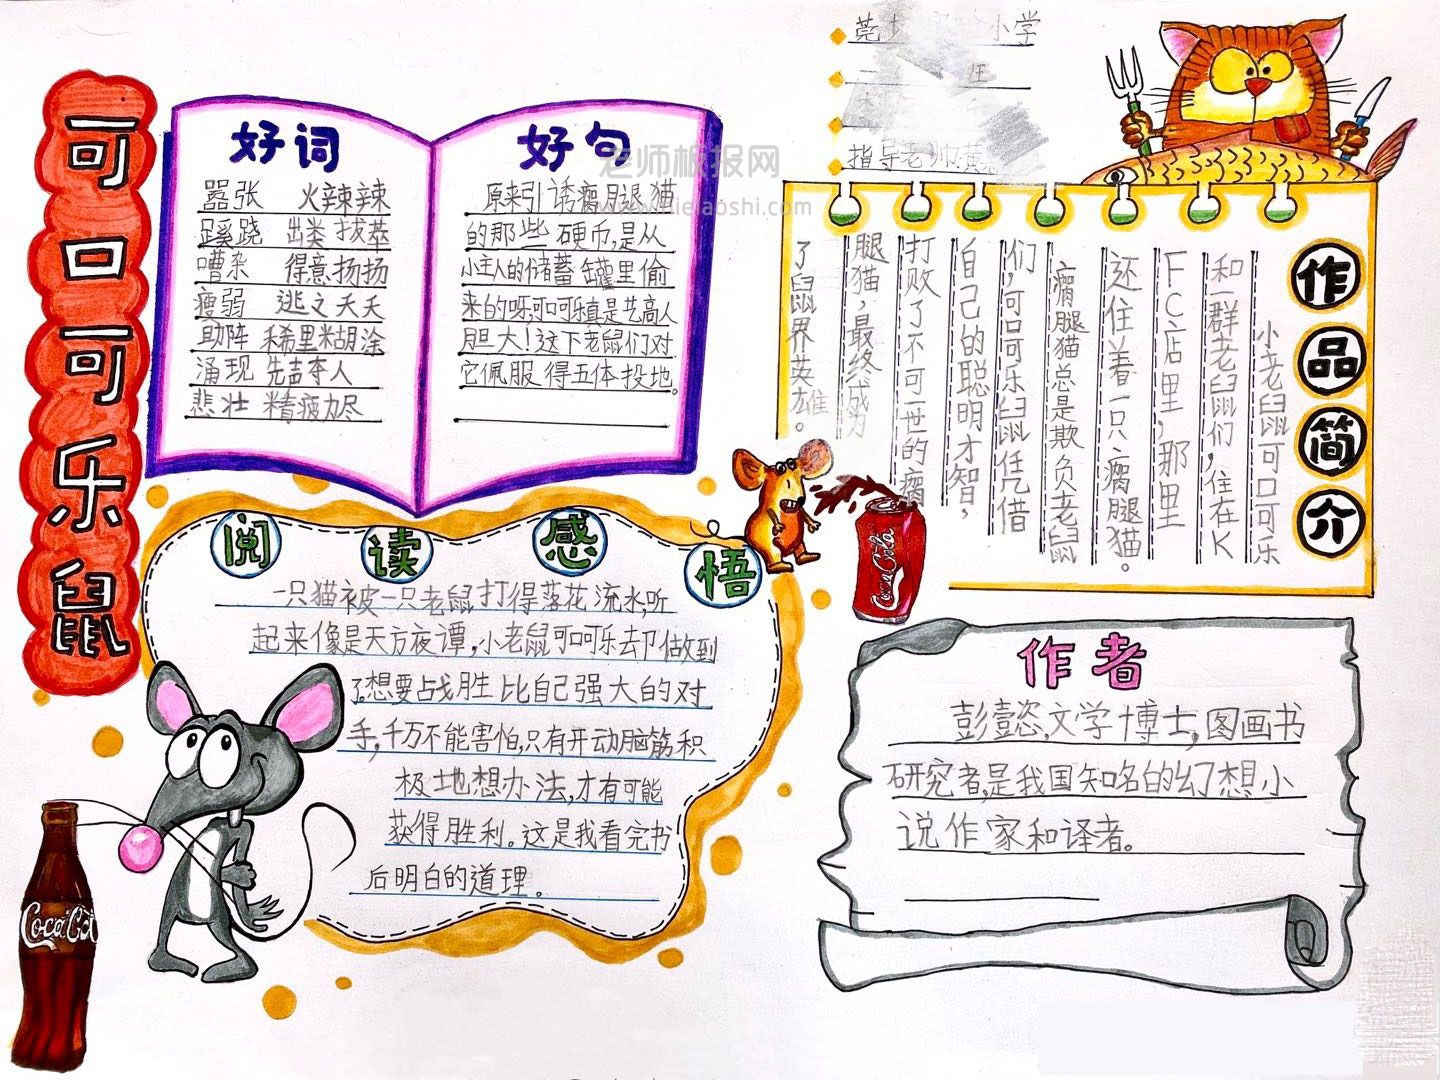 可口可乐鼠
好词
嚣张 火辣辣
蹊跷 出类拔萃
嘈杂 得意扬扬
瘦弱 逃之夭夭
助阵 稀里糊涂
涌现 先声夺人
悲壮 精疲力尽
好句
原来引诱瘸腿猫
的那些硬币,是从
小主人的储蓄罐里偷
来的呀,可口可乐真是艺高人
胆大!这下老鼠们对
它佩服得五体投地。
老师板报网
小学
指导老师:黄
作品简介
小老鼠可口可乐
和一群老鼠们,住在K
FC店里,那里
还住着一只瘸腿猫。
瘸腿猫总是欺负老鼠
们,可口可乐鼠凭借
自己的聪明才智,
打败了不可一世的瘸
腿猫,最终成为
了鼠界英雄。
阅读感悟
一只猫被一只老鼠打得落花流水,听
起来像是天方夜谭,小老鼠可口可乐却做到
了想要战胜比自己强大的对
手,千万不能害怕,只有开动脑筋积
极地想办法,才有可能
获得胜利。这是我看完书
后明白的道理。
Coca-Cola
Coca-Col
作者
彭懿,文学博士,图画书
研究者,是我国知名的幻想小
说作家和译者。